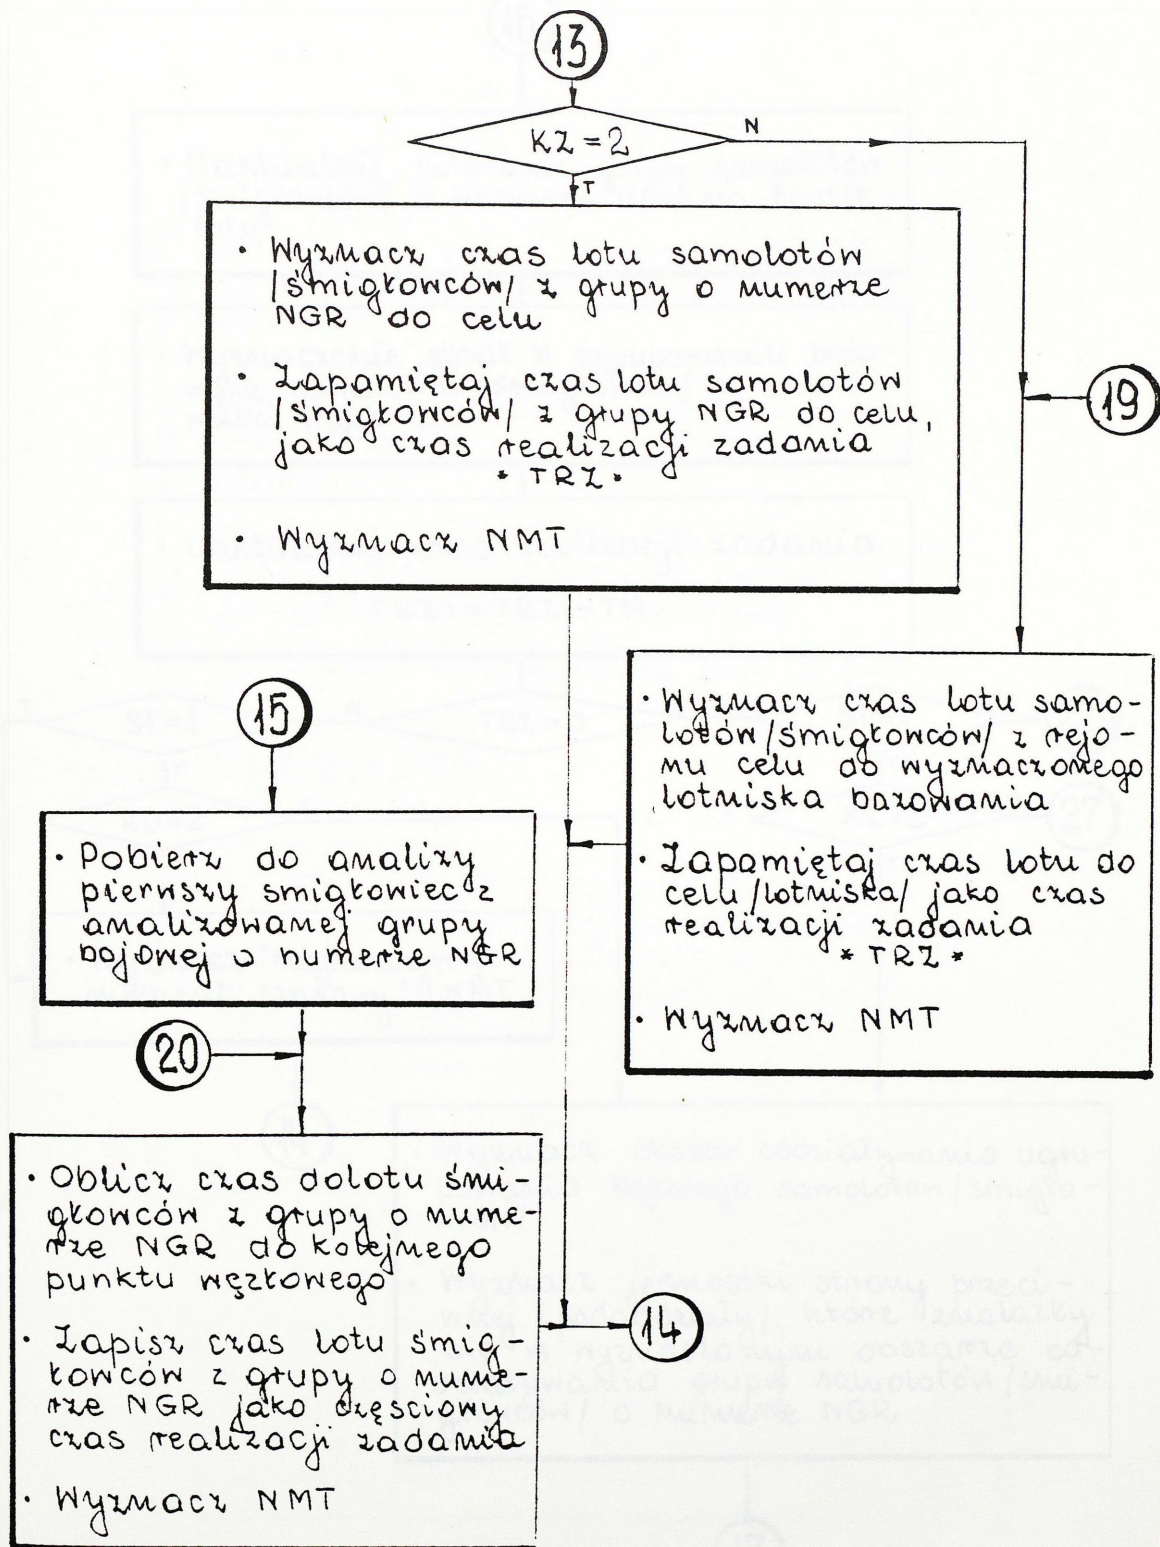 13
KZ = 2
N
T
• Wyznacz czas lotu samolotów
/śmigłowców/ z grupy o numerze
NGR do celu
• Zapamiętaj czas lotu samolotów
/śmigłowców/ z grupy NGR do celu,
jako czas realizacji zadania
* TRZ *
• Wyznacz NMT
19
• Wyznacz czas lotu samo-
lotów /śmigłowców/ z rejo-
nu celu do wyznaczonego
lotniska bazowania
• Zapamiętaj czas lotu do
celu /lotniska/ jako czas
realizacji zadania
* TRZ *
• Wyznacz NMT
15
• Pobierz do analizy
pierwszy smigłowiec z
analizowanej grupy
bojowej o numerze NGR
20
• Oblicz czas dolotu śmi-
głowców z grupy o nume-
rze NGR do kolejnego
punktu węzłowego
• Zapisz czas lotu śmig-
łowców z grupy o nume-
rze NGR jako częściowy
czas realizacji zadania
• Wyznacz NMT
14